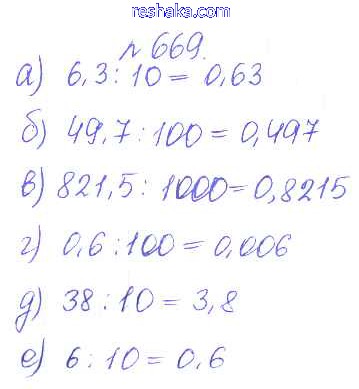 reshaka.com
№ 669.
а) 6,3 : 10 = 0,63
б) 49,7 : 100 = 0,497
в) 821,5 : 1000 = 0,8215
г) 0,6 : 100 = 0,006
д) 38 : 10 = 3,8
е) 6 : 10 = 0,6